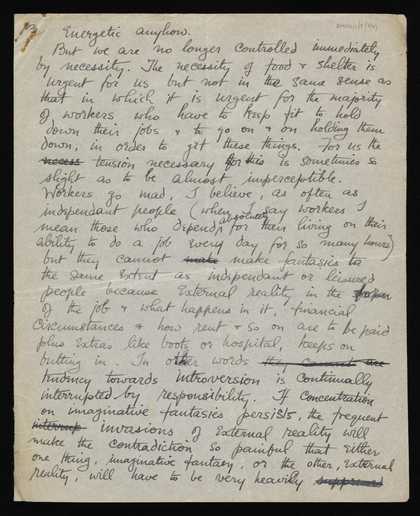 Energetic anyhow.
But we are no longer controlled immediately
by necessity. The necessity of food & shelter is
urgent for us but not in the same sense as
that in which it is urgent for the majority
of workers who have to keep fit to hold
down their jobs & to go on & on holding them
down, in order to get these things. For us the
necess tension necessary for this is sometimes so
slight as to be almost imperceptible.
Workers go mad, I believe, as often as
independant people (when I say workers I
mean those who depend absolutely for their living on their
ability to do a job every day for so many hours)
but they cannot make make fantasies to
the same extent as independant or leisured
people because External reality in the
of the job & what happens in it, financial
circumstances & how rent & so on are to be paid
plus Extras like boots or hospital, keeps on
butting in. In other words they cannot are
tendency towards introversion is continually
interrupted by responsibility. If concentration
on imaginative fantasies persists, the frequent
interrup invasions of External reality will
make the contradiction so painful that Either
one thing, imaginative fantasy, or the other, External
reality, will have to be very heavily suppressed